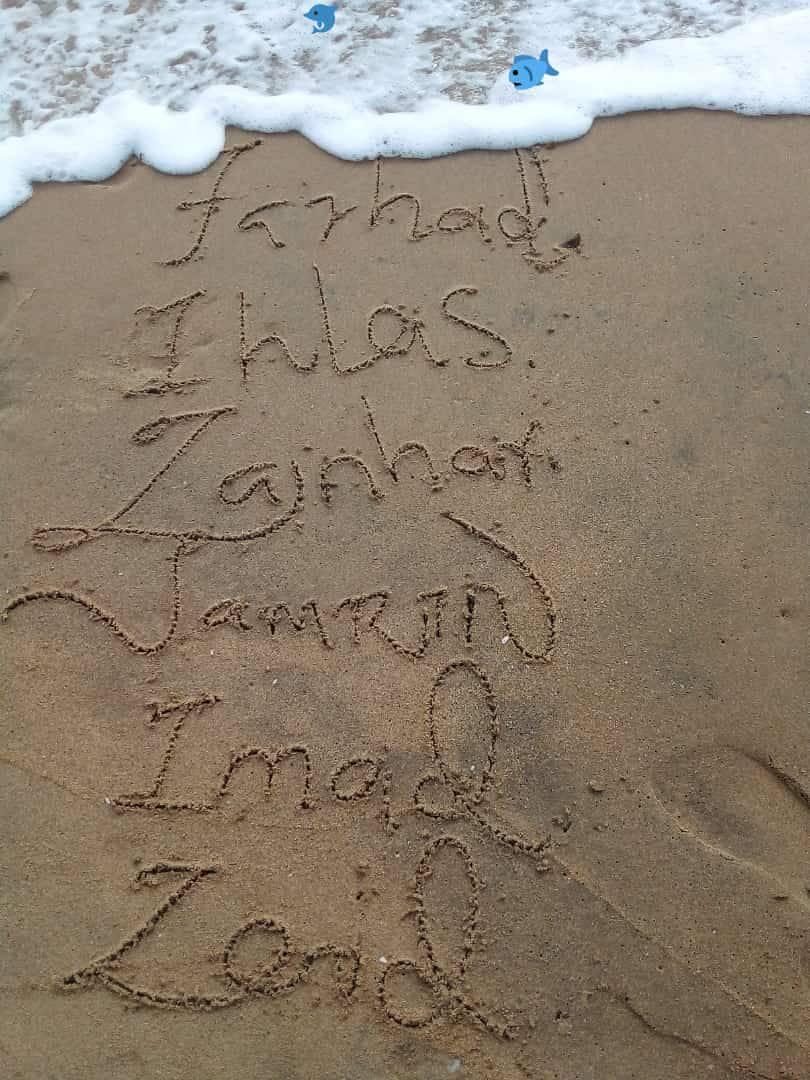 Farhad
Ihlas
Zainhar
Jamrin
Imad
Zeid